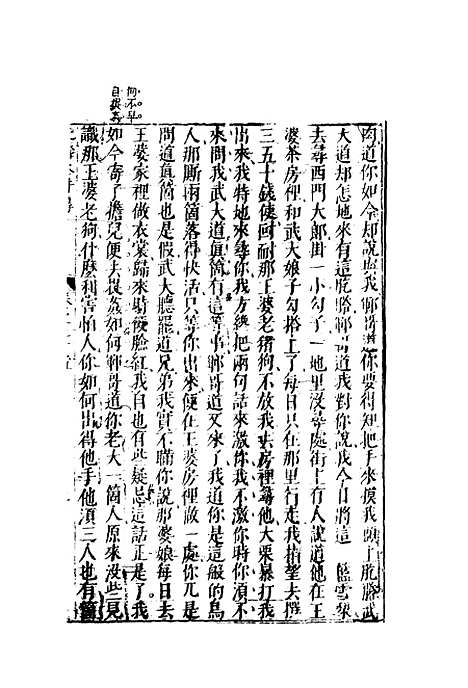 肉道你如今却說與我鄆哥道你要得知把手來摸我頭上肐𦢊武
大道却怎地來有這肐𦢊鄆哥道我對你說我今日將這一籃雪梨
去尋西門大郎掛一小勾子一地里沒尋處街上有人說道他在王
婆茶房裡和武大娘子勾搭上了每日只在那里行走我指望去撰
三五十錢使叵耐那王婆老猪狗不放我去房裡尋他大栗暴打我
出來我特地來尋你我方纔把兩句話來激你我不激你時你須不
來問我武大道真箇有這等事鄆哥道又來了我道你是這般的鳥
人那厮兩箇落得快活只等你出來便在王婆房裡做一處你兀是
問道真箇也是假武大聽罷道兄弟我實不瞞你說那婆娘每日去
王婆家裡做衣裳歸來時便臉紅我自也有些疑忌這話正是了我
如今寄了擔兒便去捉姦如何鄆哥道你老大一箇人原來沒些見
識那王婆老狗什麼利害怕人你如何出得他手他須三人也有箇
何不早
自